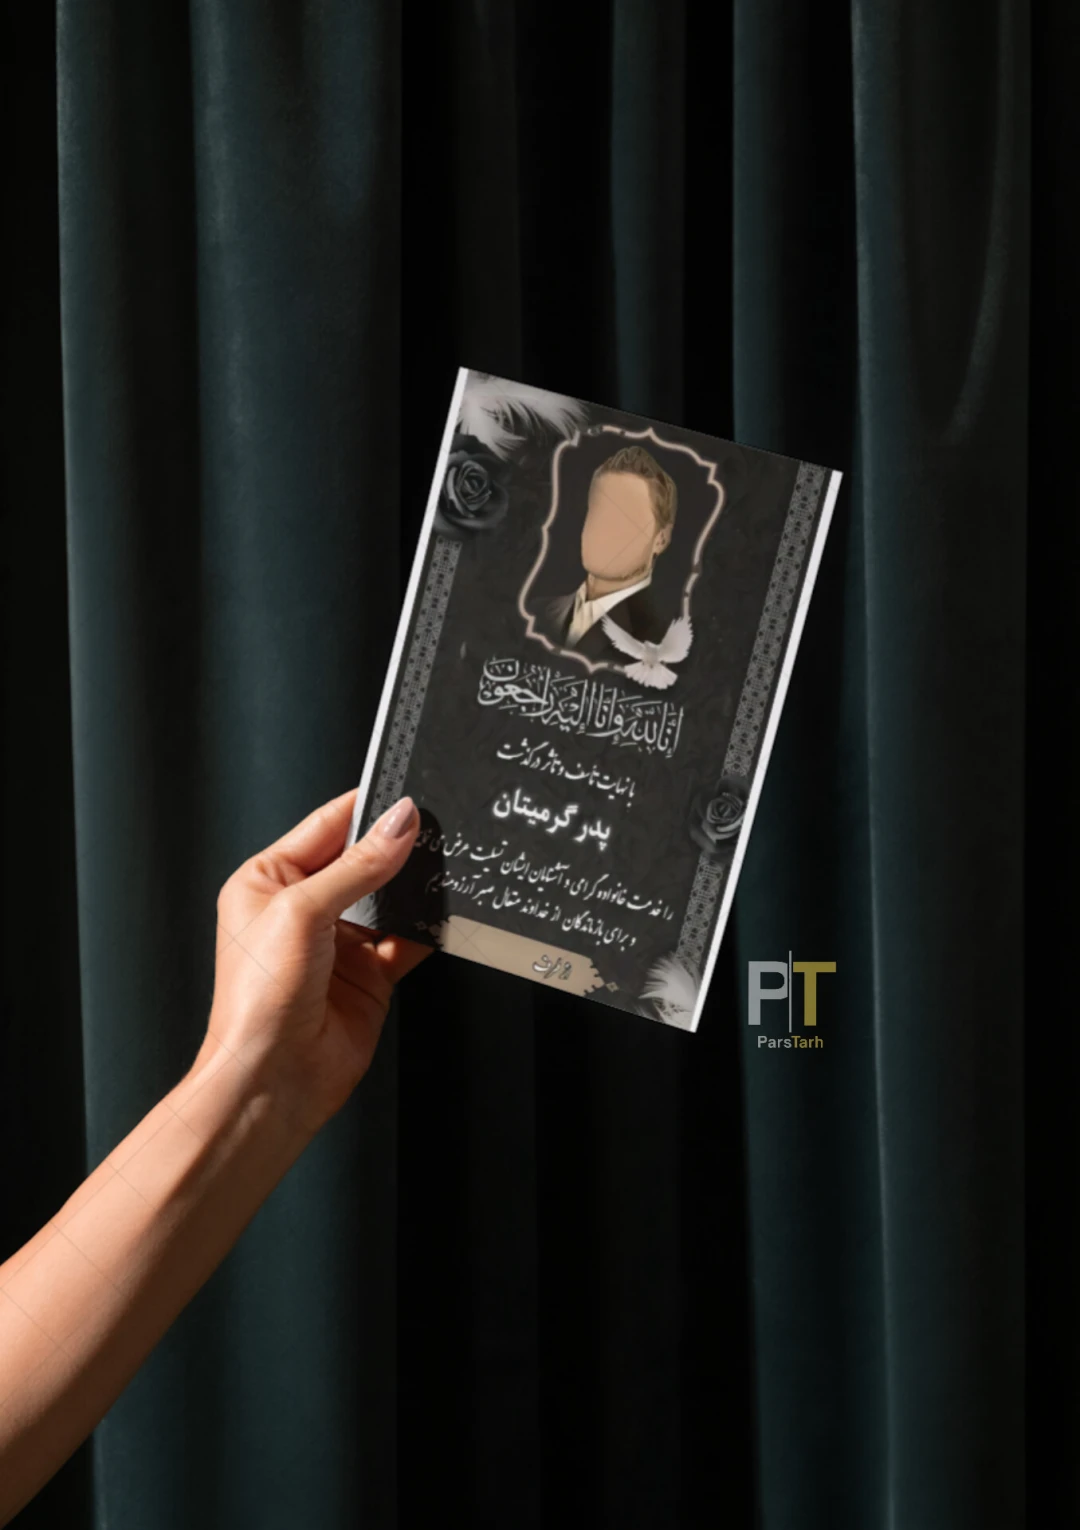 إنا لله وإنا إليه راجعون
با نهایت تأسف و تأثر درگذشت
پدر گرمیتان
را خدمت خانواده گرامی و آشنایان ایشان تسلیت عرض می
و برای بازماندگان از خداوند متعال صبر آرزومندیم
از طرف
PT
ParsTarh